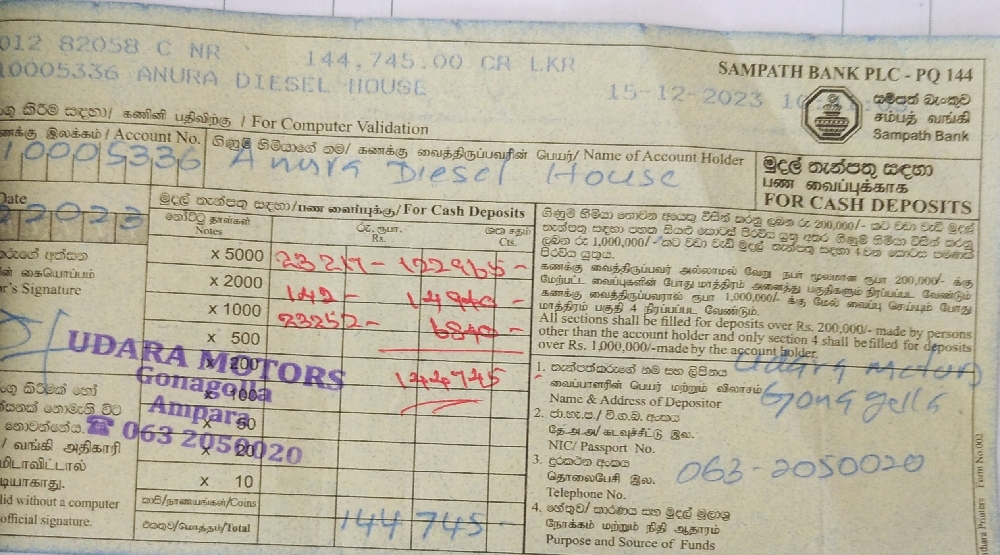 012 82058 C NR 144,745.00 CR LKR
10005336 ANURA DIESEL HOUSE 15-12-2023
SAMPATH BANK PLC - PQ 144
සම්පත් බැංකුව
சம்பத் வங்கி
Sampath Bank
කිරීම සඳහා/ கணினி பதிவிற்கு / For Computer Validation
கணக்கு இலக்கம் / Account No. ගිණුම් හිමියාගේ නම/ கணக்கு வைத்திருப்பவரின் பெயர்/ Name of Account Holder
10005336 Anura Diesel House
මුදල් තැන්පතු සඳහා
பண வைப்புக்காக
FOR CASH DEPOSITS
Date
22023
මුදල් තැන්පතු සඳහා/பண வைப்புக்கு/For Cash Deposits
නෝට්ටු தாள்கள் රු. ரூபா. ශත சதம்
Notes Rs. Cts.
x 5000 23217- 122965-
x 2000 142- 14940-
x 1000 23252- 6840-
x 500
x 200 144745
x 100
x 50
x 20
x 10
කාසි/நாணயங்கள்/Coins
එකතුව/மொத்தம்/Total 144745-
කරුගේ අත්සන
ன் கையொப்பம்
r's Signature
UDARA MOTORS
Gonagolla
Ampara
☎ 063 2050020
කිරීමක් හෝ
සනක් නොමැති විට
නොවන්නේය.
/ வங்கி அதிகாரி
மிடாவிட்டால்
டியாகாது.
lid without a computer
official signature.
ගිණුම් හිමියා නොවන අයෙකු විසින් කරනු ලබන රු 200,000/- කට වඩා වැඩි මුදල්
ලබන රු 1,000,000/- කට වඩා වැඩි මුදල් තැන්පතු සඳහා 4 වන කොටස පමණක්
පිරවිය යුතුය.
கணக்கு வைத்திருப்பவர் அல்லாமல் வேறு நபர் மூலமான ரூபா 200,000/- க்கு
மேற்பட்ட வைப்புகளின் போது மாத்திரம் அனைத்து பகுதிகளும் நிரப்பப்பட வேண்டும்
கணக்கு வைத்திருப்பவரால் ரூபா 1,000,000/- க்கு மேல் வைப்பு செய்யும் போது
மாத்திரம் பகுதி 4 நிரப்பப்பட வேண்டும்.
All sections shall be filled for deposits over Rs. 200,000/- made by persons
other than the account holder and only section 4 shall be filled for deposits
over Rs. 1,000,000/-made by the account holder.
1. තැන්පත්කරුගේ නම සහ ලිපිනය Udara Motors
வைப்பாளரின் பெயர் மற்றும் விலாசம் Gonagolla
Name & Address of Depositor
2. ජා.හැ.ප./ වි.ග.බ. අංකය
தே.அ.அ/ கடவுச்சீட்டு இல.
NIC/ Passport No.
3. දුරකථන අංකය 063-2050020
தொலைபேசி இல.
Telephone No.
4. හේතුව/ කාරණය සහ මුදල් මූලාශ්‍ර
நோக்கம் மற்றும் நிதி ஆதாரம்
Purpose and Source of Funds
Printers Form No.002